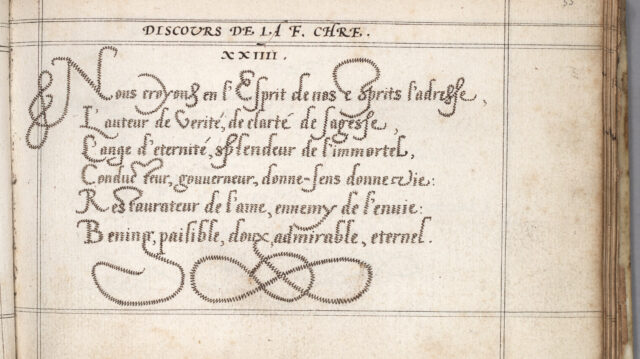 DISCOVRS DE LA F. CHRE.
XXIIII.
Nous croyons en l'Esprit de nos Esprits l'adresse,
L'auteur de Verité, de clarté de sagesse,
L'ange d'eternité, splendeur de l'immortel,
Conducteur, gouverneur, donne-sens donne vie:
Restaurateur de l'ame, ennemy de l'envie:
Bening, paisible, doux, admirable, eternel.